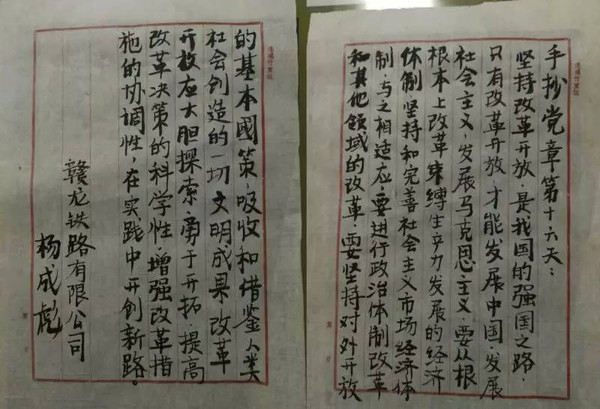 手抄党章第十六天：
坚持改革开放，是我国的强国之路，
只有改革开放，才能发展中国、发展
社会主义、发展马克思主义。要从根
根本上改革束缚生产力发展的经济
体制，坚持和完善社会主义市场经济体
制，与之相适应，要进行政治体制改革
和其他领域的改革，要坚持对外开放
的基本國策，吸收和借鉴人类
社会创造的一切文明成果，改革
开放应大胆探索，勇于开拓，提高
改革决策的科学性，增强改革措
施的协调性，在实践中开创新路。
赣龙铁路有限公司
杨成彪